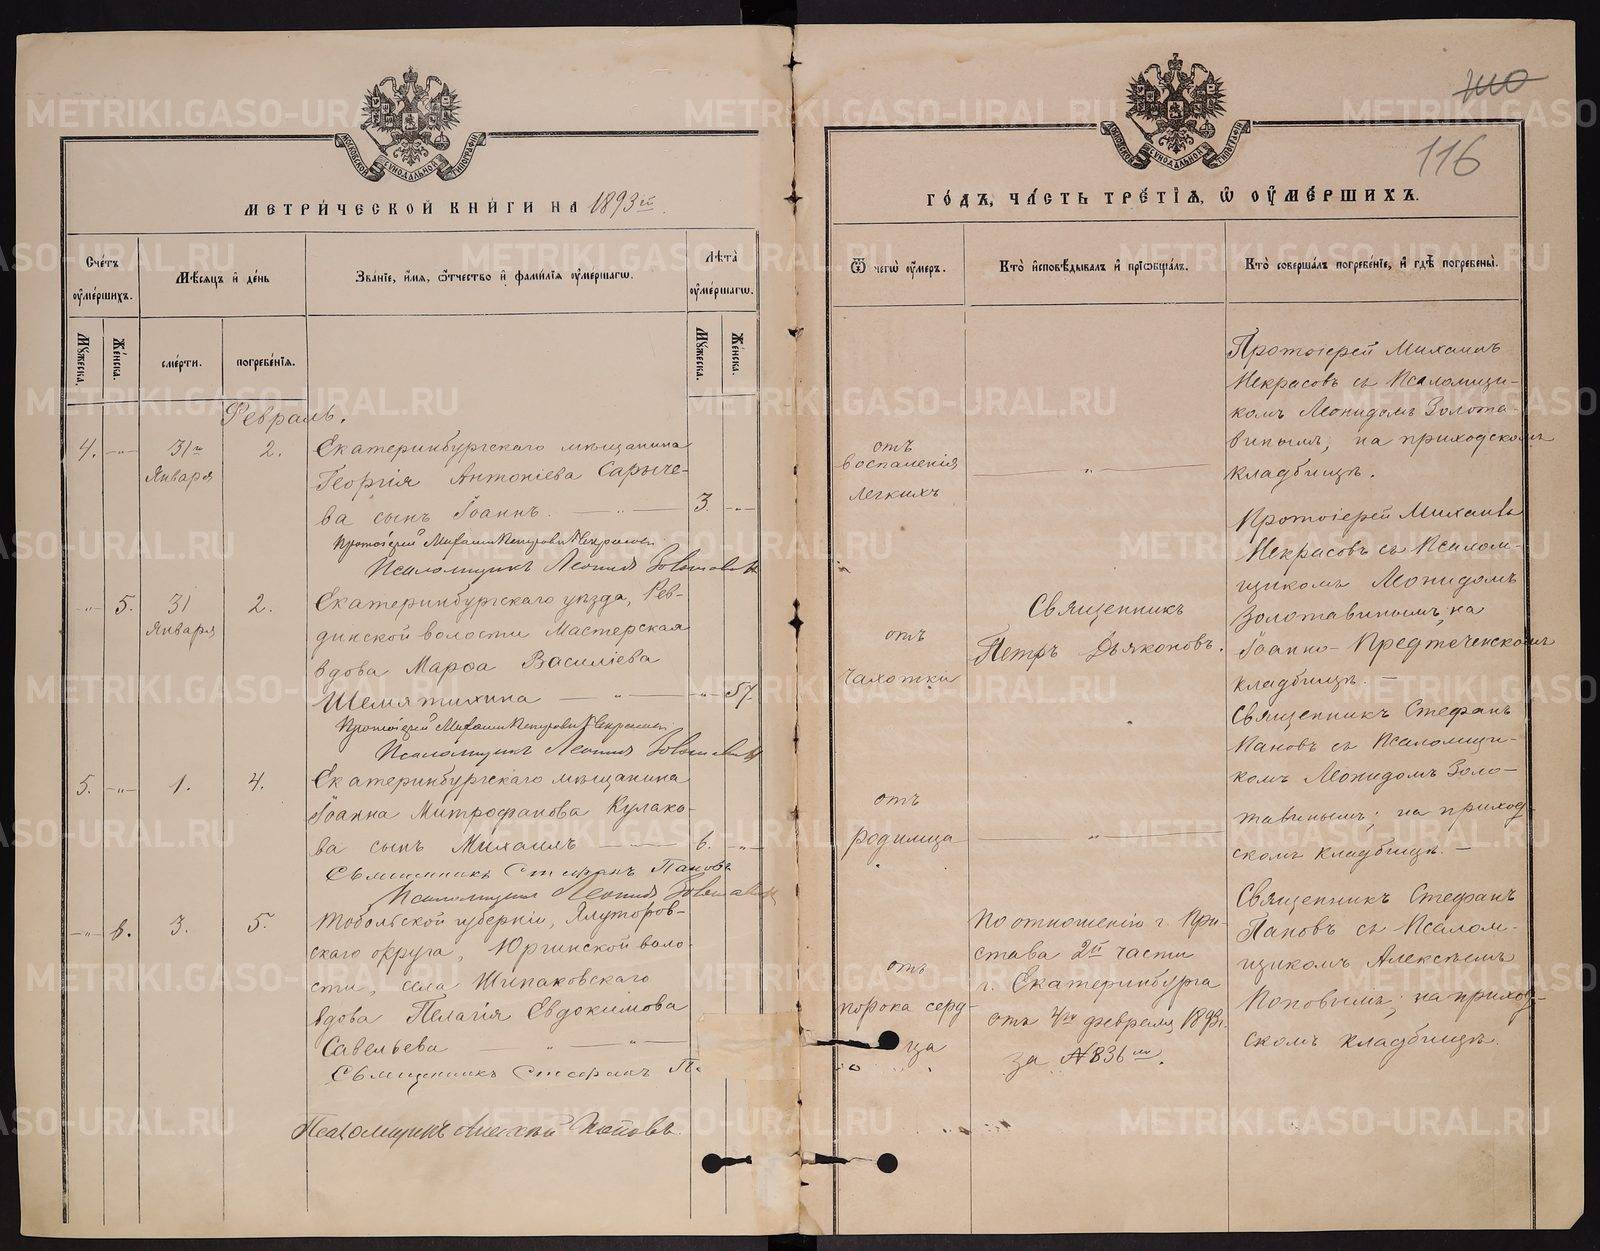 МОСКОВСКОЙ СѴНОДАЛЬНОЙ ТИПОГРАФІИ
МЕТРИ́ЧЕСКОЙ КНИ́ГИ НА 1893й
Сче́тъ ѹ҆ме́ршихъ.
Мѣ́сяцъ и҆ де́нь
Зва́ніе, и҆́мя, ѻ҆́тчество и҆ фами́лія ѹ҆ме́ршагѡ.
Лѣ́та ѹ҆ме́ршагѡ.
Мꙋ́жеска.
Же́нска.
сме́рти.
погребе́нія.
Мꙋ́жеска.
Же́нска.
Февраль.
4. -„- 31го Января 2. Екатеринбургскаго мѣщанина
Георгія Антоніева Сарыче-
ва сынъ Іоаннъ. — „ — 3. -„-
Протоіерей Михаилъ Петровъ Некрасовъ
Псаломщикъ Леонидъ Золотавинъ
-„- 5. 31 Января 2. Екатеринбургскаго уѣзда, Рев-
динской волости Мастерская
вдова Марѳа Василіева
Шемятихина — „ — -„- 57.
Протоіерей Михаилъ Петровъ Некрасовъ
Псаломщикъ Леонидъ Золотавинъ
5. -„- 1. 4. Екатеринбургскаго мѣщанина
Іоанна Митрофанова Кулако-
ва сынъ Михаилъ — 6. -„-
Священникъ Стефанъ Пановъ
Псаломщикъ Леонидъ Золотавинъ
-„- 6. 3. 5. Тобольской губерніи, Ялуторов-
скаго округа, Юргинской воло-
сти, села Шипаковскаго
вдова Пелагія Евдокимова
Савельева — „ — „ —
Священникъ Стефанъ П
Псаломщикъ Алексѣй Поповъ.
116
МОСКОВСКОЙ СѴНОДАЛЬНОЙ ТИПОГРАФІИ
ГО́ДЪ, ЧА́СТЬ ТРЕ́ТІЯ, Ѽ ОУ҆МЕ́РШИХЪ.
Ѿ чегѡ̀ ѹ҆́меръ.
Кто̀ и҆сповѣ́дывалъ и҆ пріѡбща́лъ.
Кто̀ соверша́лъ погребе́ніе, и҆ гдѣ̀ погребены̀.
отъ
воспаленія
легкихъ
— „ —
Протоіерей Михаилъ
Некрасовъ съ Псаломщи-
комъ Леонидомъ Золота-
винымъ; на приходскомъ
кладбищѣ.
отъ
чахотки
Священникъ
Петръ Дьяконовъ.
Протоіерей Михаилъ
Некрасовъ съ Псалом-
щикомъ Леонидомъ
Золотавинымъ; на
Іоанно-Предтеченскомъ
кладбищѣ. —
отъ
родимца
— „ —
Священникъ Стефанъ
Пановъ съ Псаломщи-
комъ Леонидомъ Золо-
тавинымъ; на приход-
скомъ кладбищѣ. —
отъ
порока серд-
ца
По отношенію г. При-
става 2й части
г. Екатеринбурга
отъ 4го февраля 1893г.
за №836мъ.
Священникъ Стефанъ
Пановъ съ Псалом-
щикомъ Алексѣемъ
Поповымъ; на приход-
скомъ кладбищѣ.
METRIKI.GASO-URAL.RU